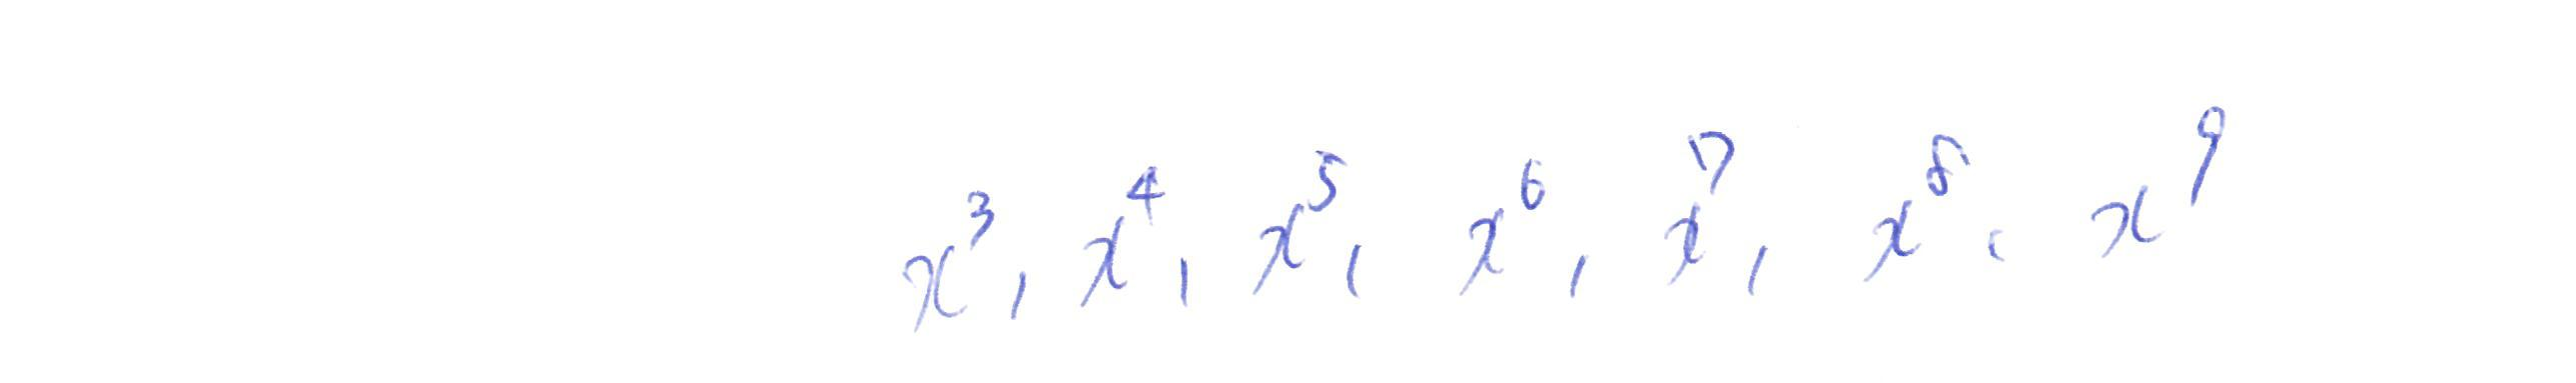 x³, x⁴, x⁵, x⁶, x⁷, x⁸, x⁹